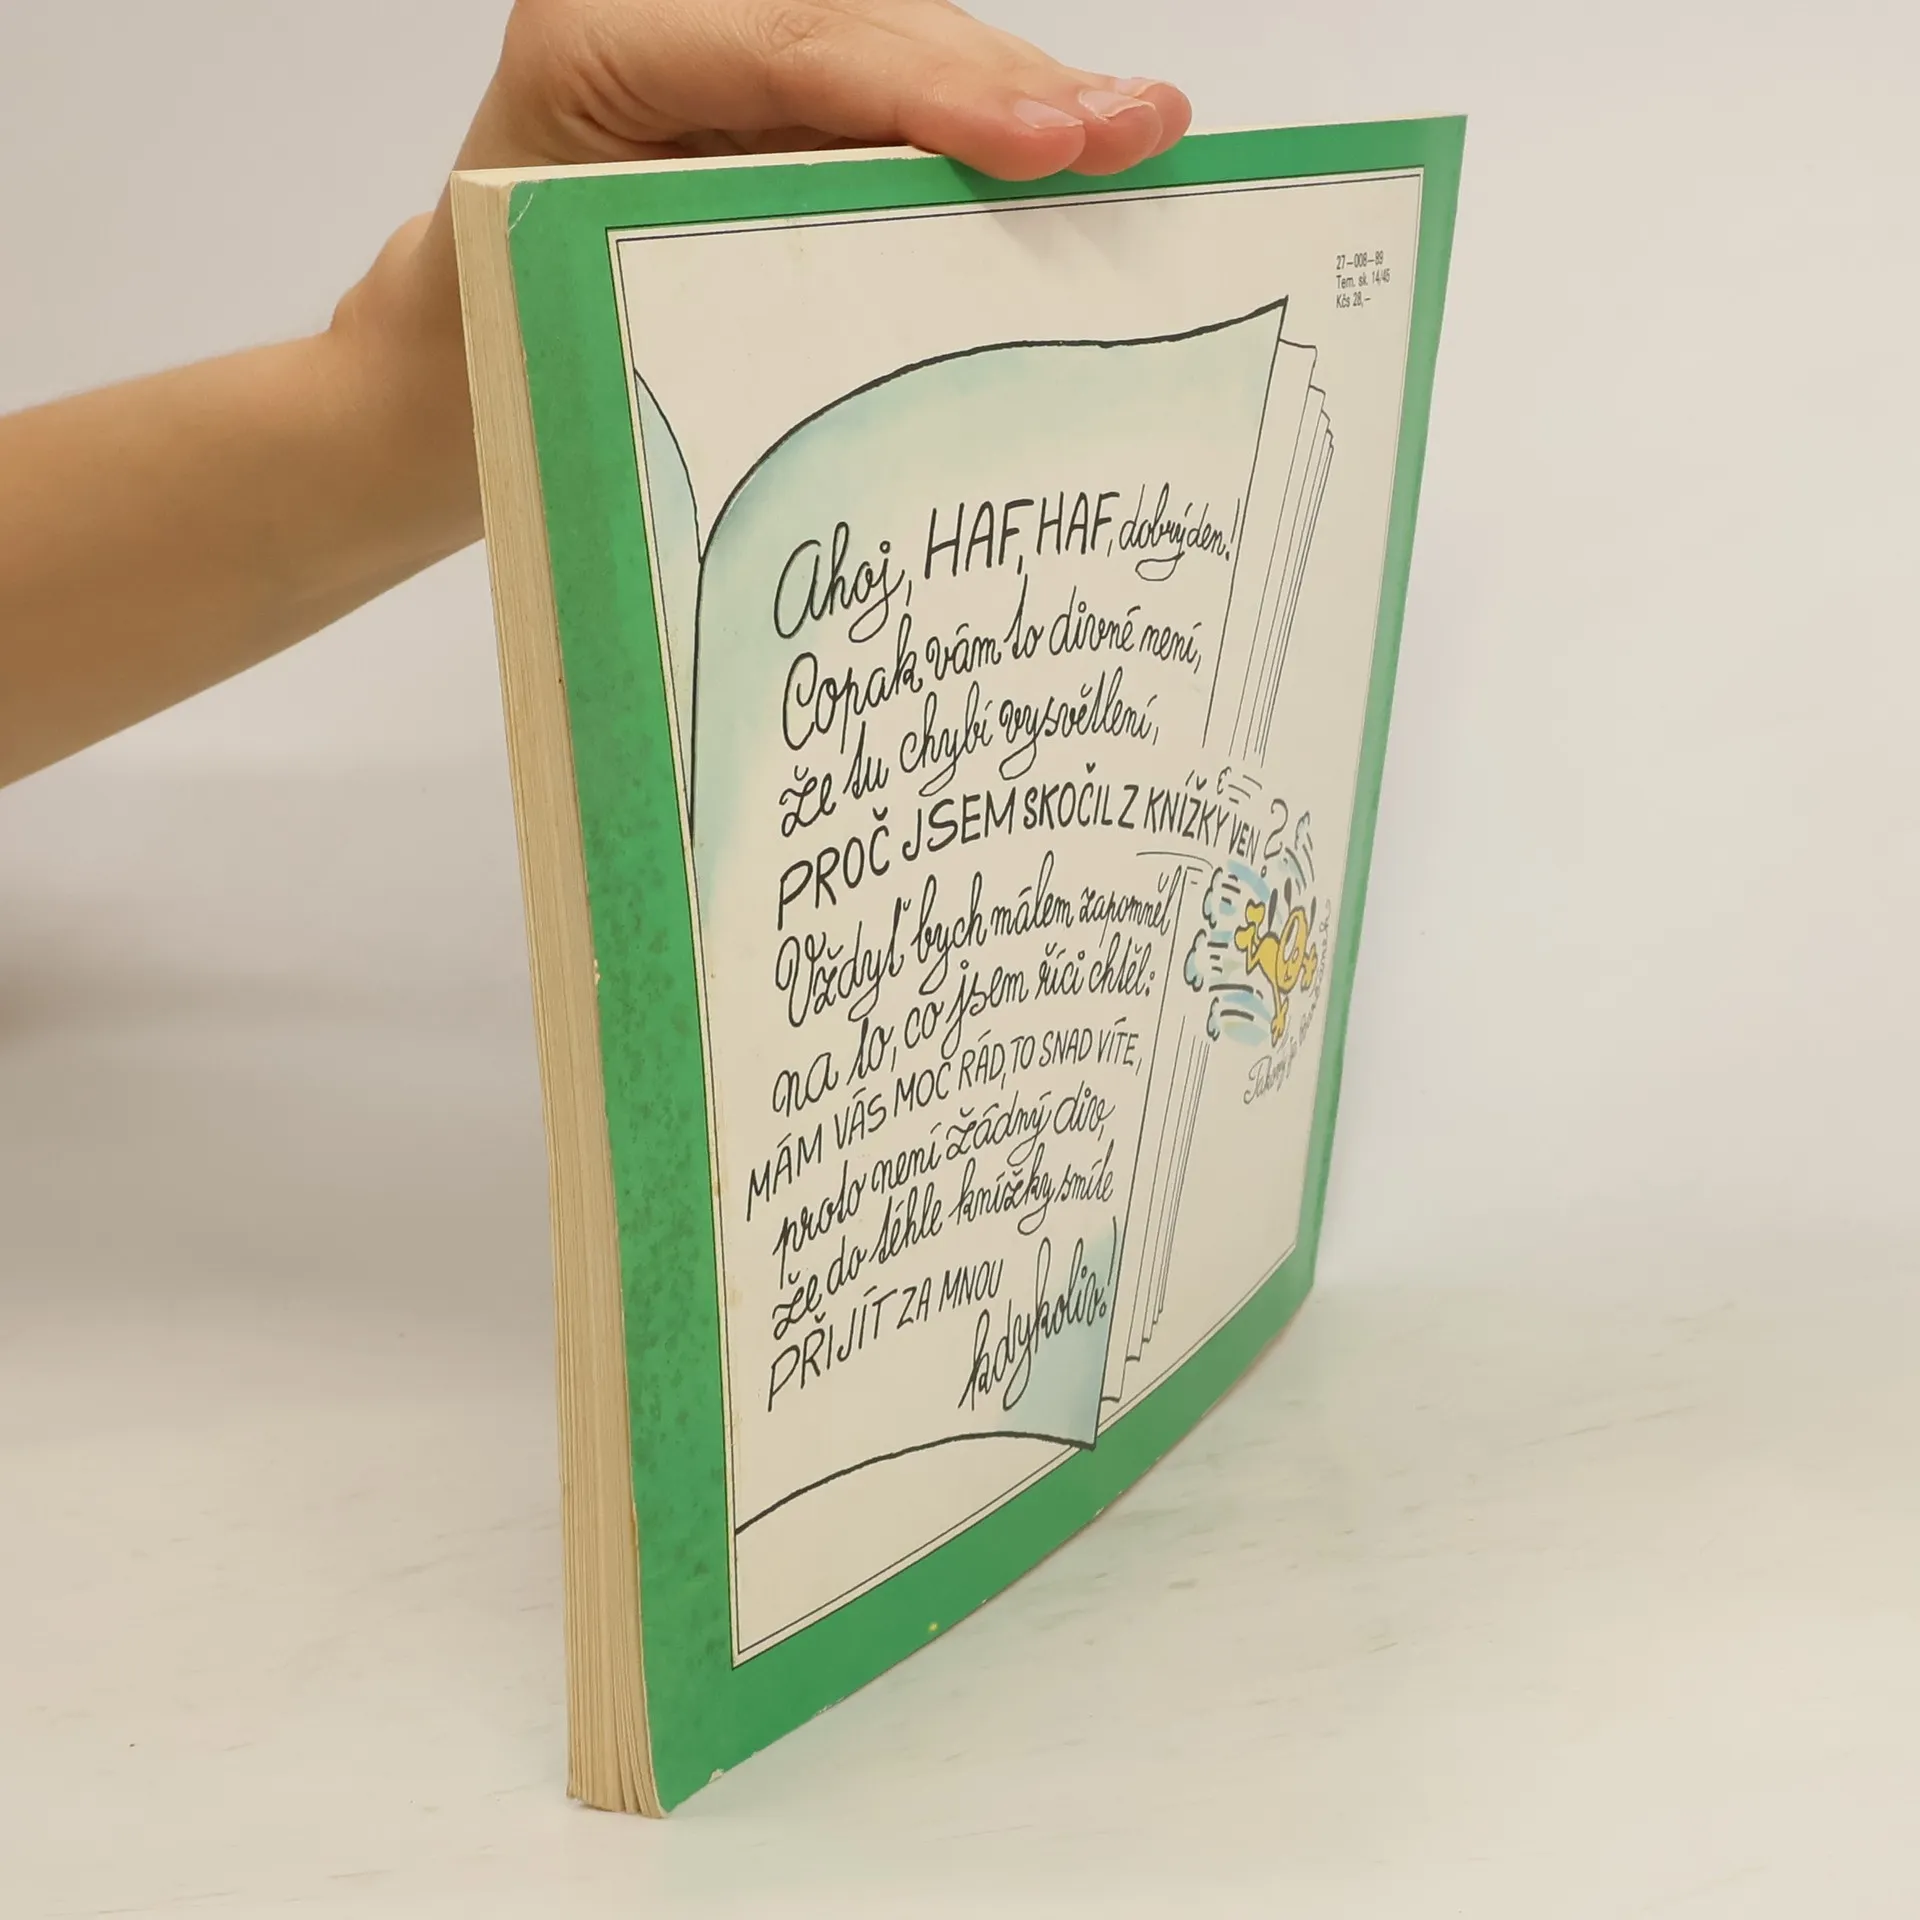 27–008–89
Tem. sk. 14/45
Kčs 28,–
Ahoj, HAF, HAF, dobrý den!
Copak vám to divné není,
že tu chybí vysvětlení,
PROČ JSEM SKOČIL Z KNÍŽKY VEN?
Vždyť bych málem zapomněl
na to, co jsem říci chtěl:
MÁM VÁS MOC RÁD, TO SNAD VÍTE,
proto není žádný div,
že do téhle knížky smíte
PŘIJÍT ZA MNOU
kdykoliv!